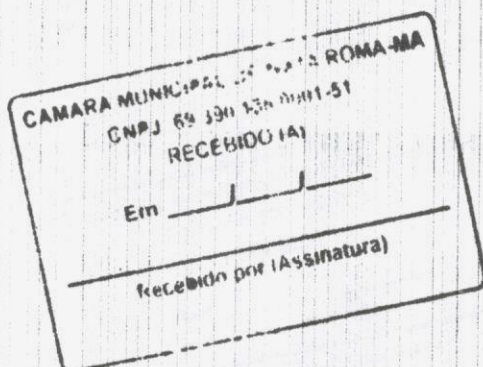 CAMARA MUNICIPAL ROMA-MA
CNPJ 69
RECEBIDO (A)
Em ____/____/____
Recebido por (Assinatura)